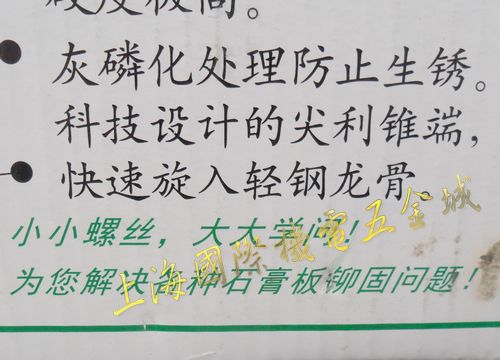 硬度极高。
灰磷化处理防止生锈。
科技设计的尖利锥端，
快速旋入轻钢龙骨。
小小螺丝，大大学问！
为您解决各种石膏板铆固问题！
上海國際機電五金城